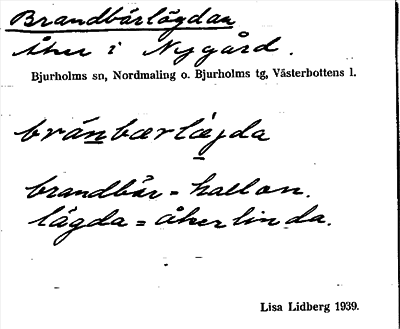 Brandbärlägdan
Åker i Nygård.
Bjurholms sn, Nordmaling o. Bjurholms tg, Västerbottens l.
bránbærlæjda
brandbär = hallon.
lägda = åkerlinda.
Lisa Lidberg 1939.